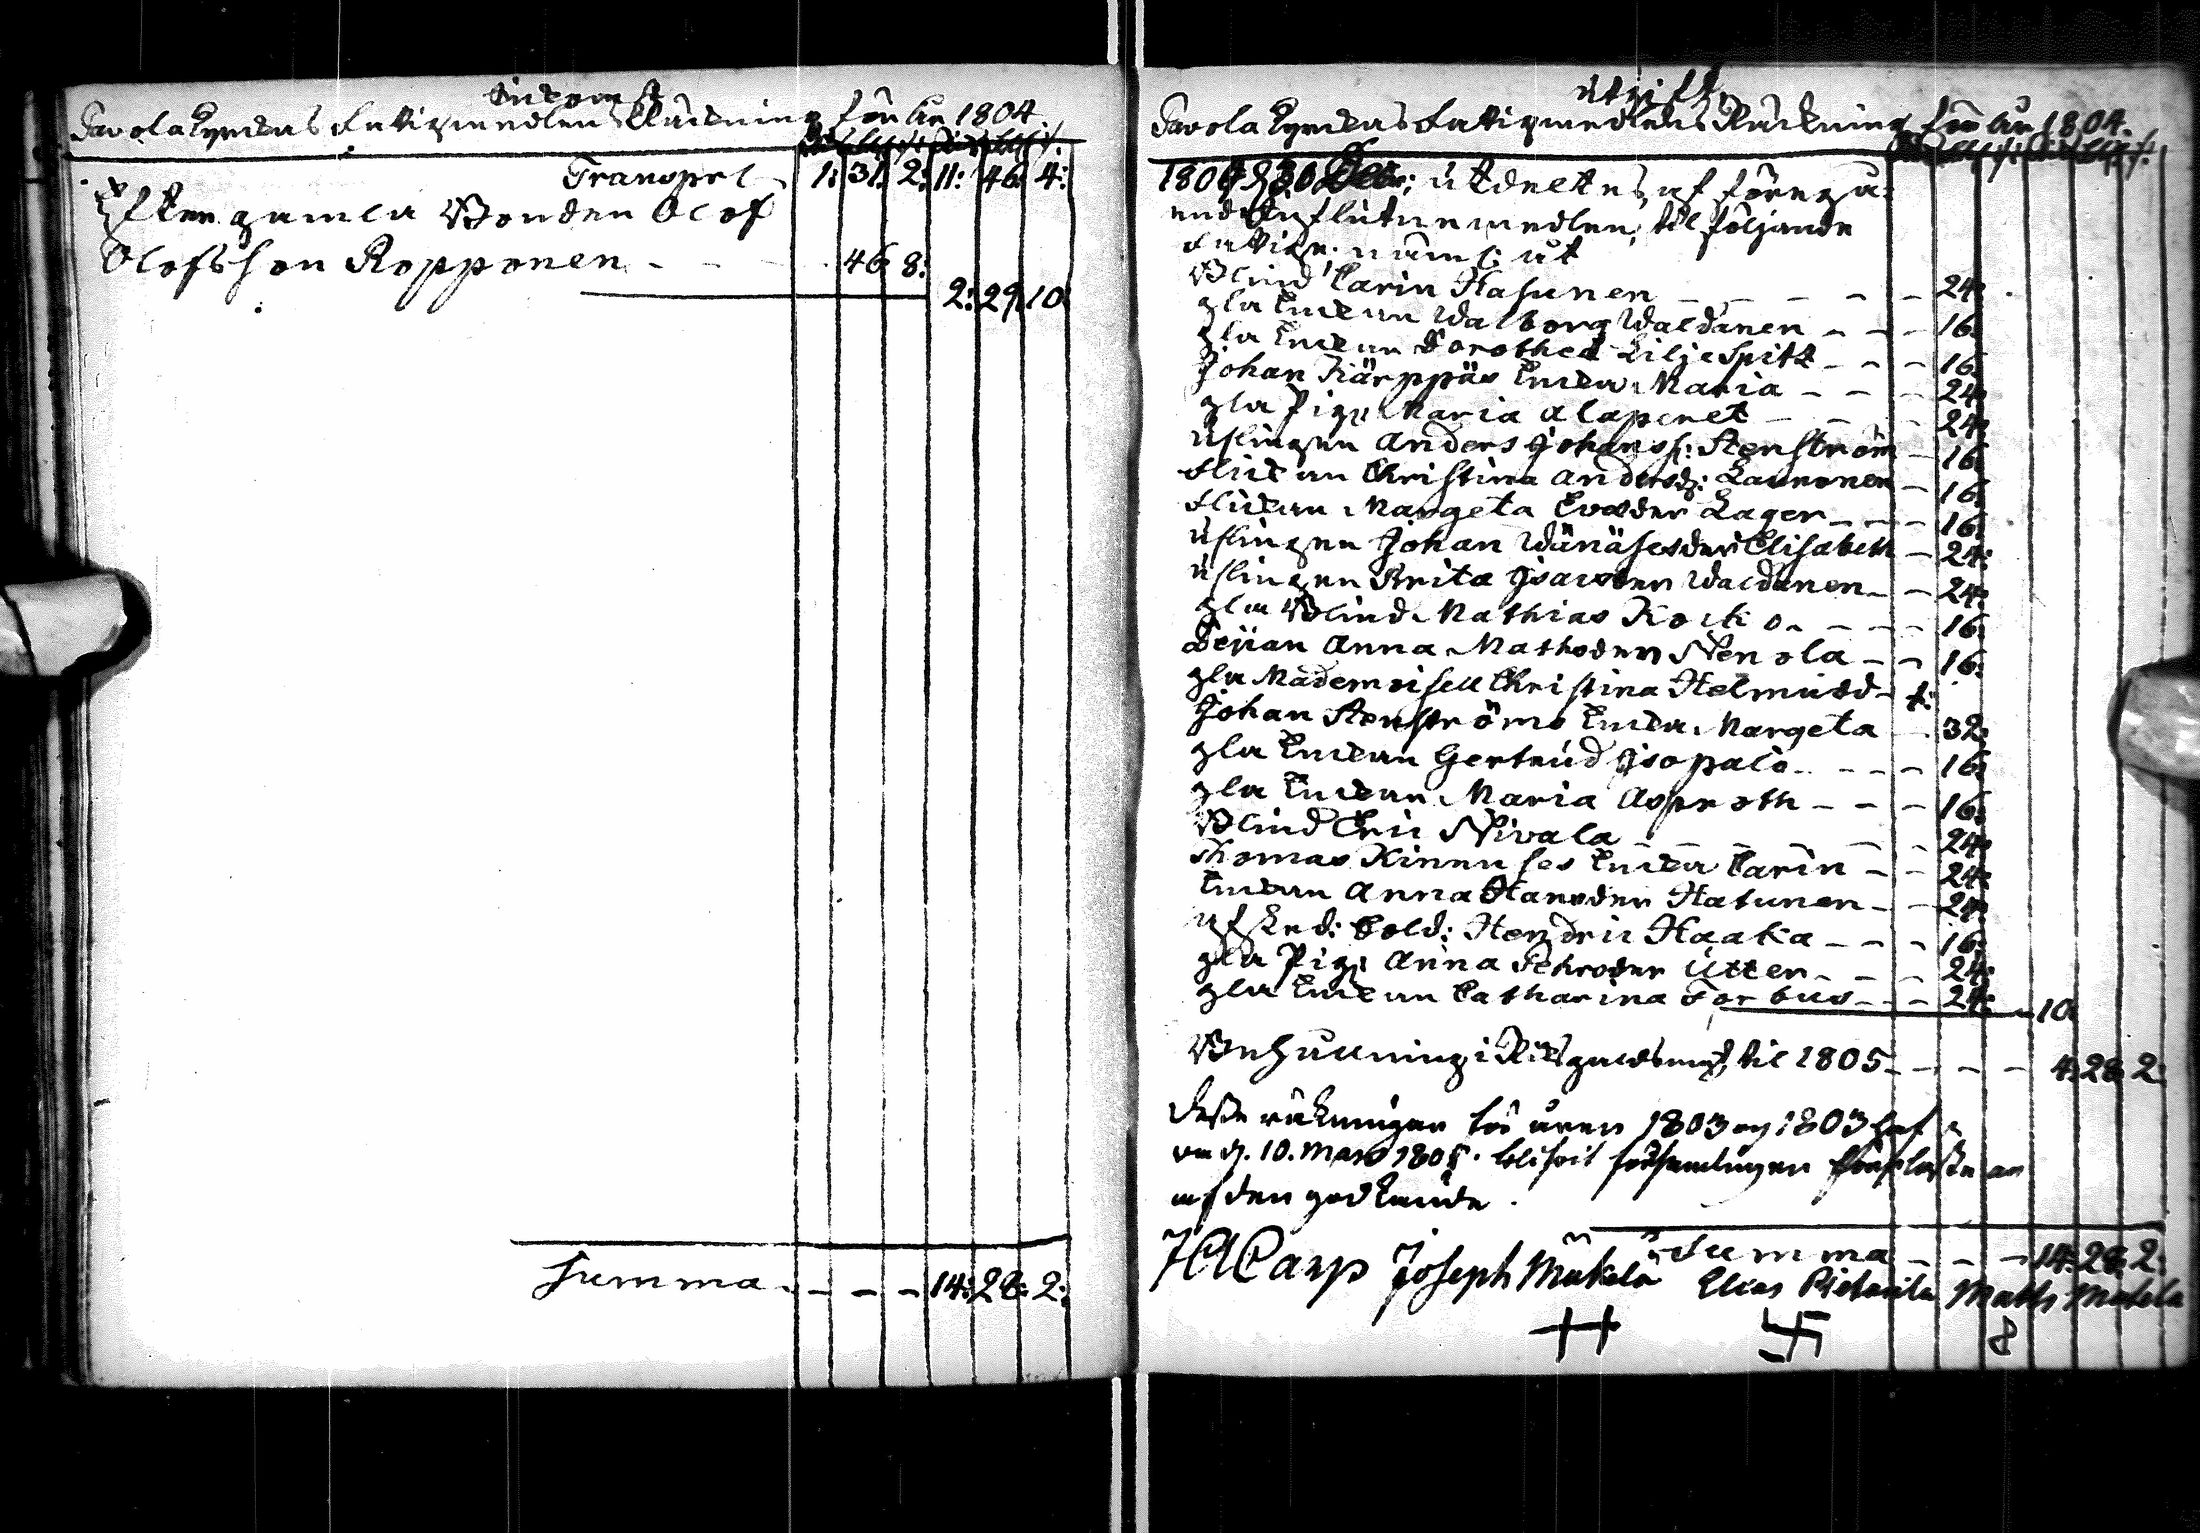 Inkomst
Savolax Kyrckas Fattigmedlens Räckning för År 1804.
Transport 1: 31. 2: 11: 46. 4:
Efter gamla Bonden Olof
Olofsson Ropponen - - - 46. 8:
2: 29. 10.
Summa - - - - 14: 28: 2:
Utgift
Kyrckas Fattigmedlens Räckning för år 1804.
1804 d. 30 Dec: utdeltes af föregå-
ende influtne medlen, til följande
Fattige, näml: åt
Blind Carin Hasunen - - - - - 24:
gla Enckan Walborg Waldanen - - - 16:
gla Enckan Dorothea Liljespitt - - - 16:
Johan Kärppäs Encka Maria - - - 24:
gla Pig: Maria Alaperet - - - - 24:
uslingen Anders Johanss: Stenström - 16:
Flickan Christina Andersd: Launonen - 16:
Flickan Margeta Ersder Lager - - - 16:
uslingen Johan Wänäses der Elisabeth - 24:
uslingen Brita Isacsder Waldanen - - 24:
gla Blind Mathias Korko - - - - 16:
Anna Mathsder Stenola - - 16:
gla Mademoisell Christina Helmudd - 1:
Johan Stenströms Encka Margeta - 32:
gla Enckan Gertrud Isopalo - - - - 16:
gla Enckan Maria Asproth - - - 16:
Blind Eric Nivala - - - - - 24:
Thomas Kinnuses Encka Carin - - 24:
Enckan Anna Hansder Hatunen - - 24:
afsked: Sold: Hendric Haaka - - - 16:
gla Pig: Anna Pehrsder Utter - - - 24:
gla Enckan Catharina Forbus - - - 24:
10.
Behållning i Riksgäldsmynt til 1805 - - - - 4: 28. 2:
Desse räkningar för åren 1803 og 1803 hafva
den d. 10. Mars 1805. blifvit församlingen föreläste och
af den godkände.
Summa - - - 14: 28: 2:
Joseph Mäkelä Elias Matts Mäkelä